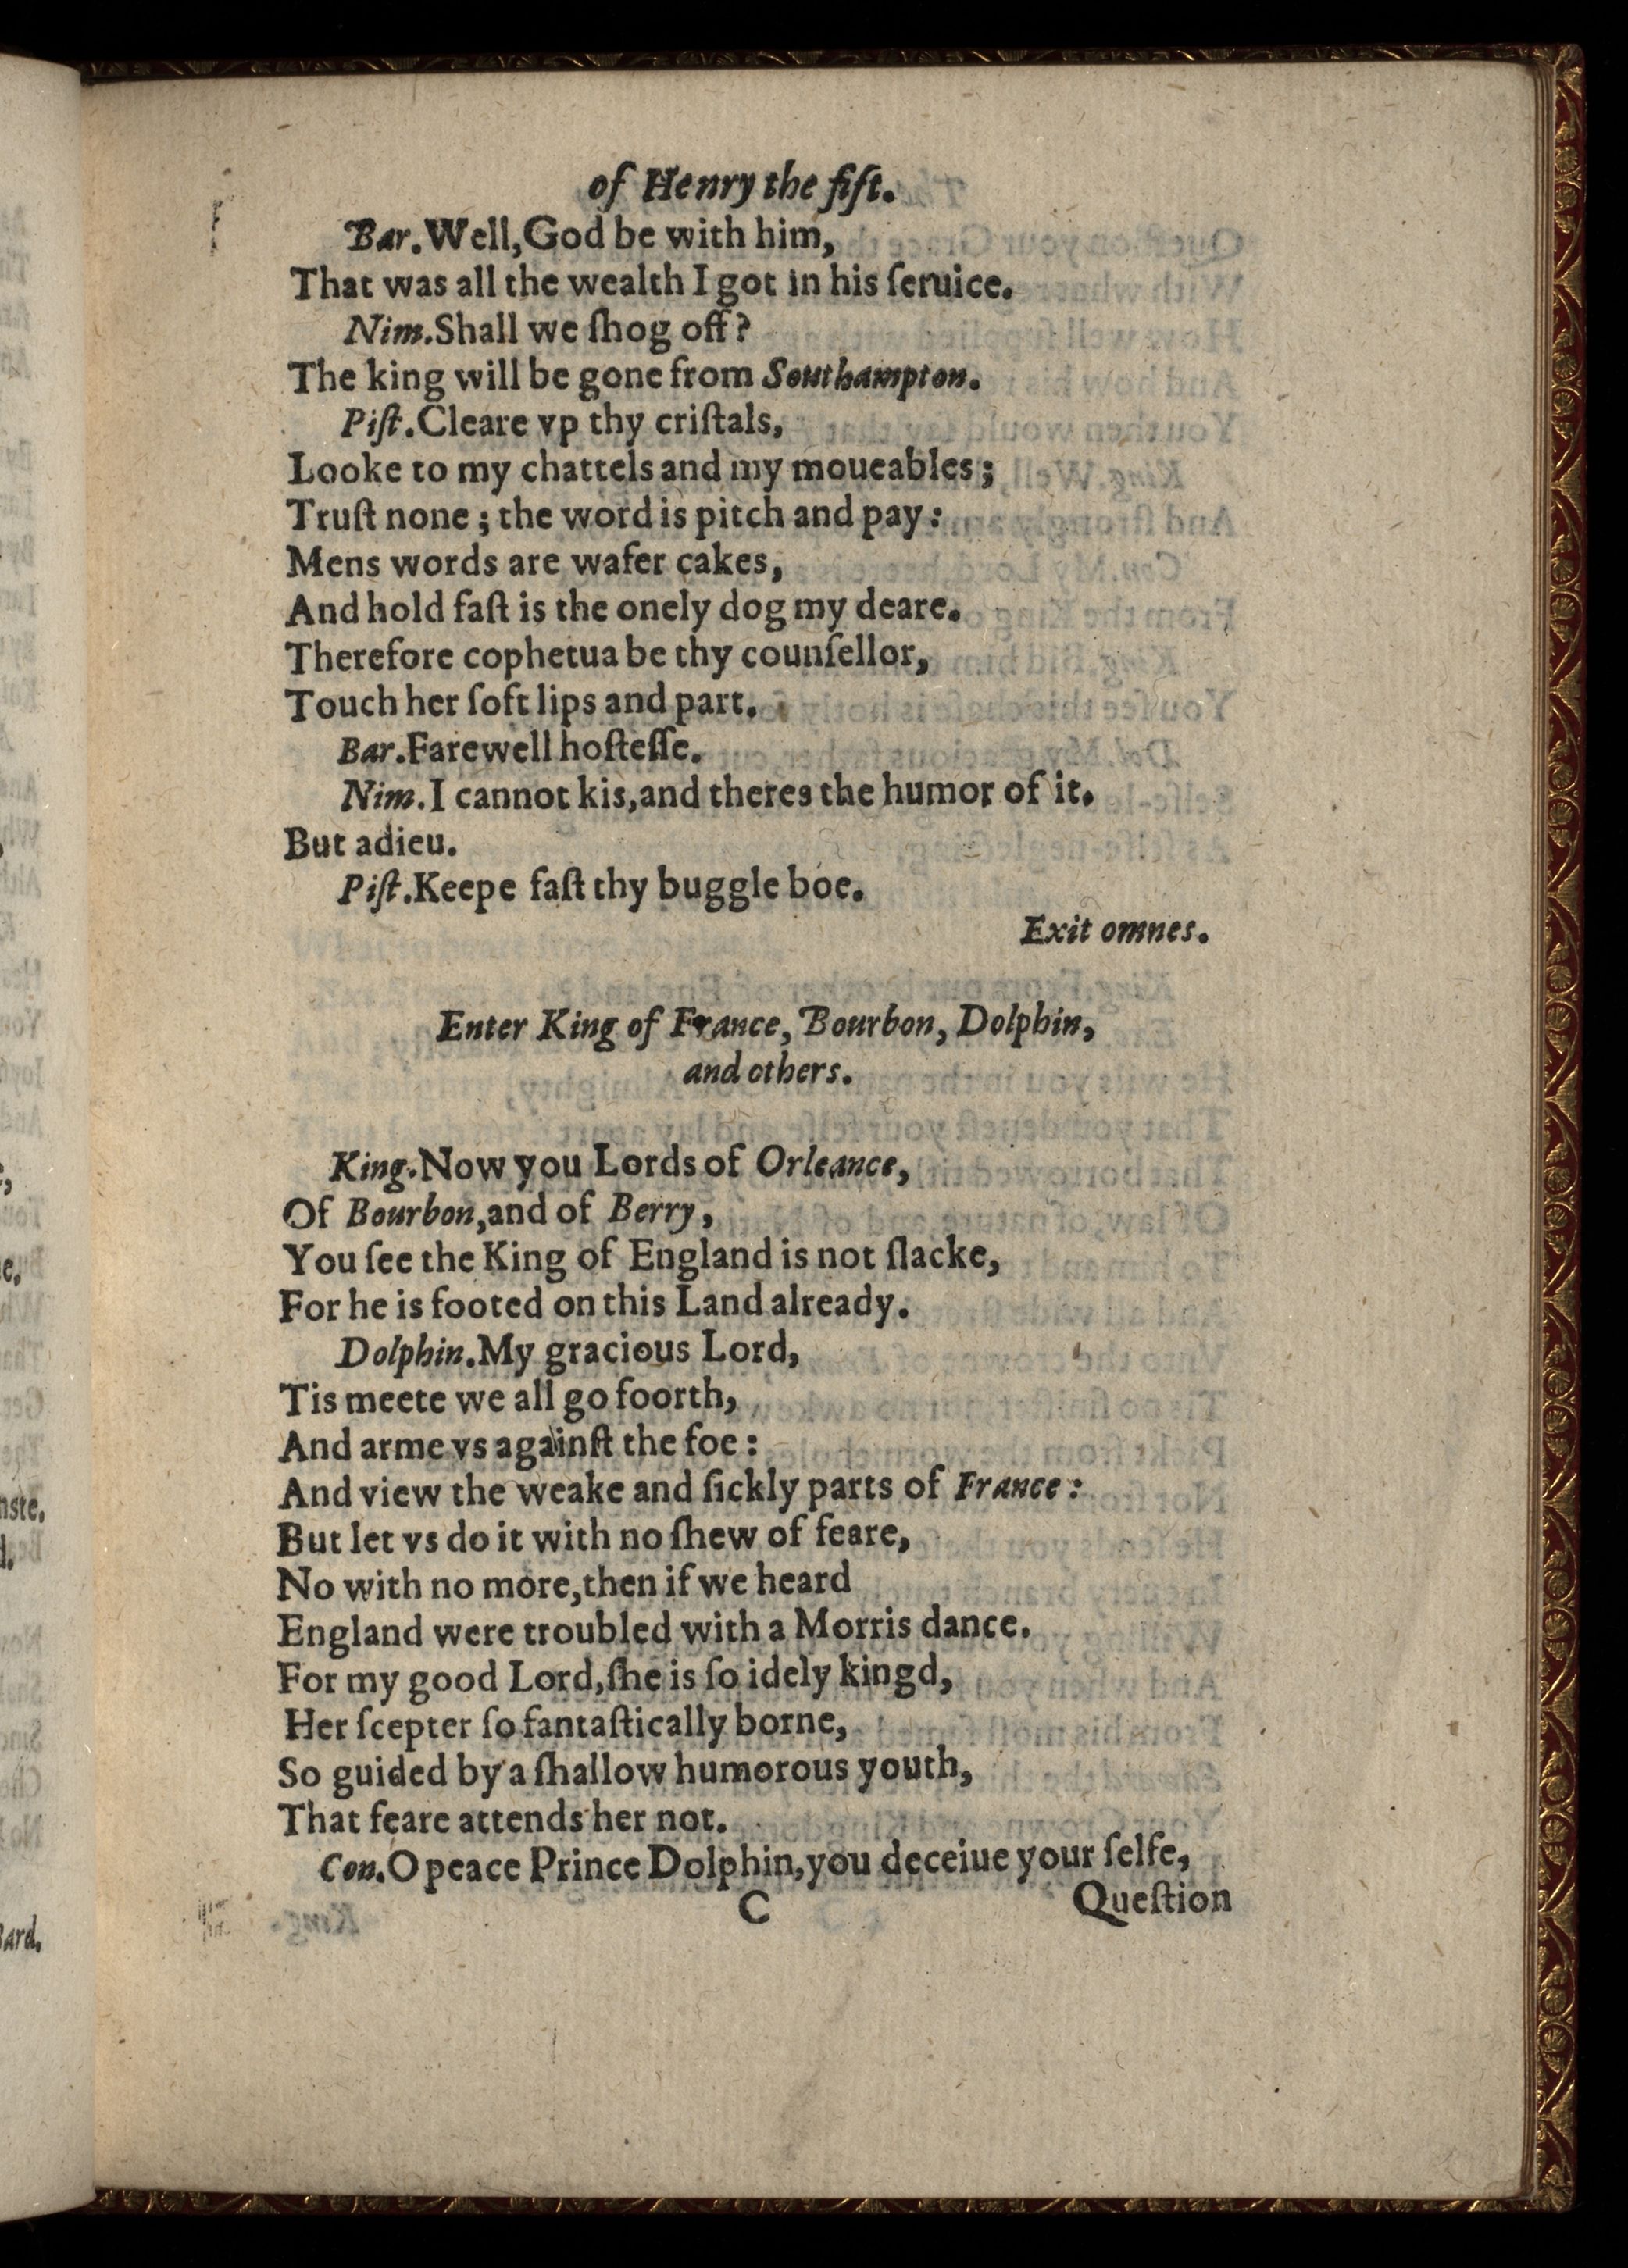 of Henry the fift.
Bar.Well,God be with him,
That was all the wealth I got in his ſeruice.
Nim.Shall we ſhog off?
The king will be gone from Southampton.
Piſt.Cleare vp thy criſtals,
Looke to my chattels and my moueables;
Truſt none; the word is pitch and pay:
Mens words are wafer cakes,
And hold faſt is the onely dog my deare.
Therefore cophetua be thy counſellor,
Touch her ſoft lips and part.
Bar.Farewell hoſteſſe.
Nim.I cannot kis,and theres the humor of it.
But adieu.
Piſt.Keepe faſt thy buggle boe.
Exit omnes.
Enter King of France, Bourbon, Dolphin,
and others.
King.Now you Lords of Orleance,
Of Bourbon,and of Berry,
You ſee the King of England is not ſlacke,
For he is footed on this Land already.
Dolphin.My gracious Lord,
Tis meete we all go foorth,
And arme vs againſt the foe:
And view the weake and ſickly parts of France:
But let vs do it with no ſhew of feare,
No with no more,then if we heard
England were troubled with a Morris dance.
For my good Lord,ſhe is ſo idely kingd,
Her ſcepter ſo fantaſtically borne,
So guided by a ſhallow humorous youth,
That feare attends her not.
Con.O peace Prince Dolphin,you deceiue your ſelfe,
C Queſtion